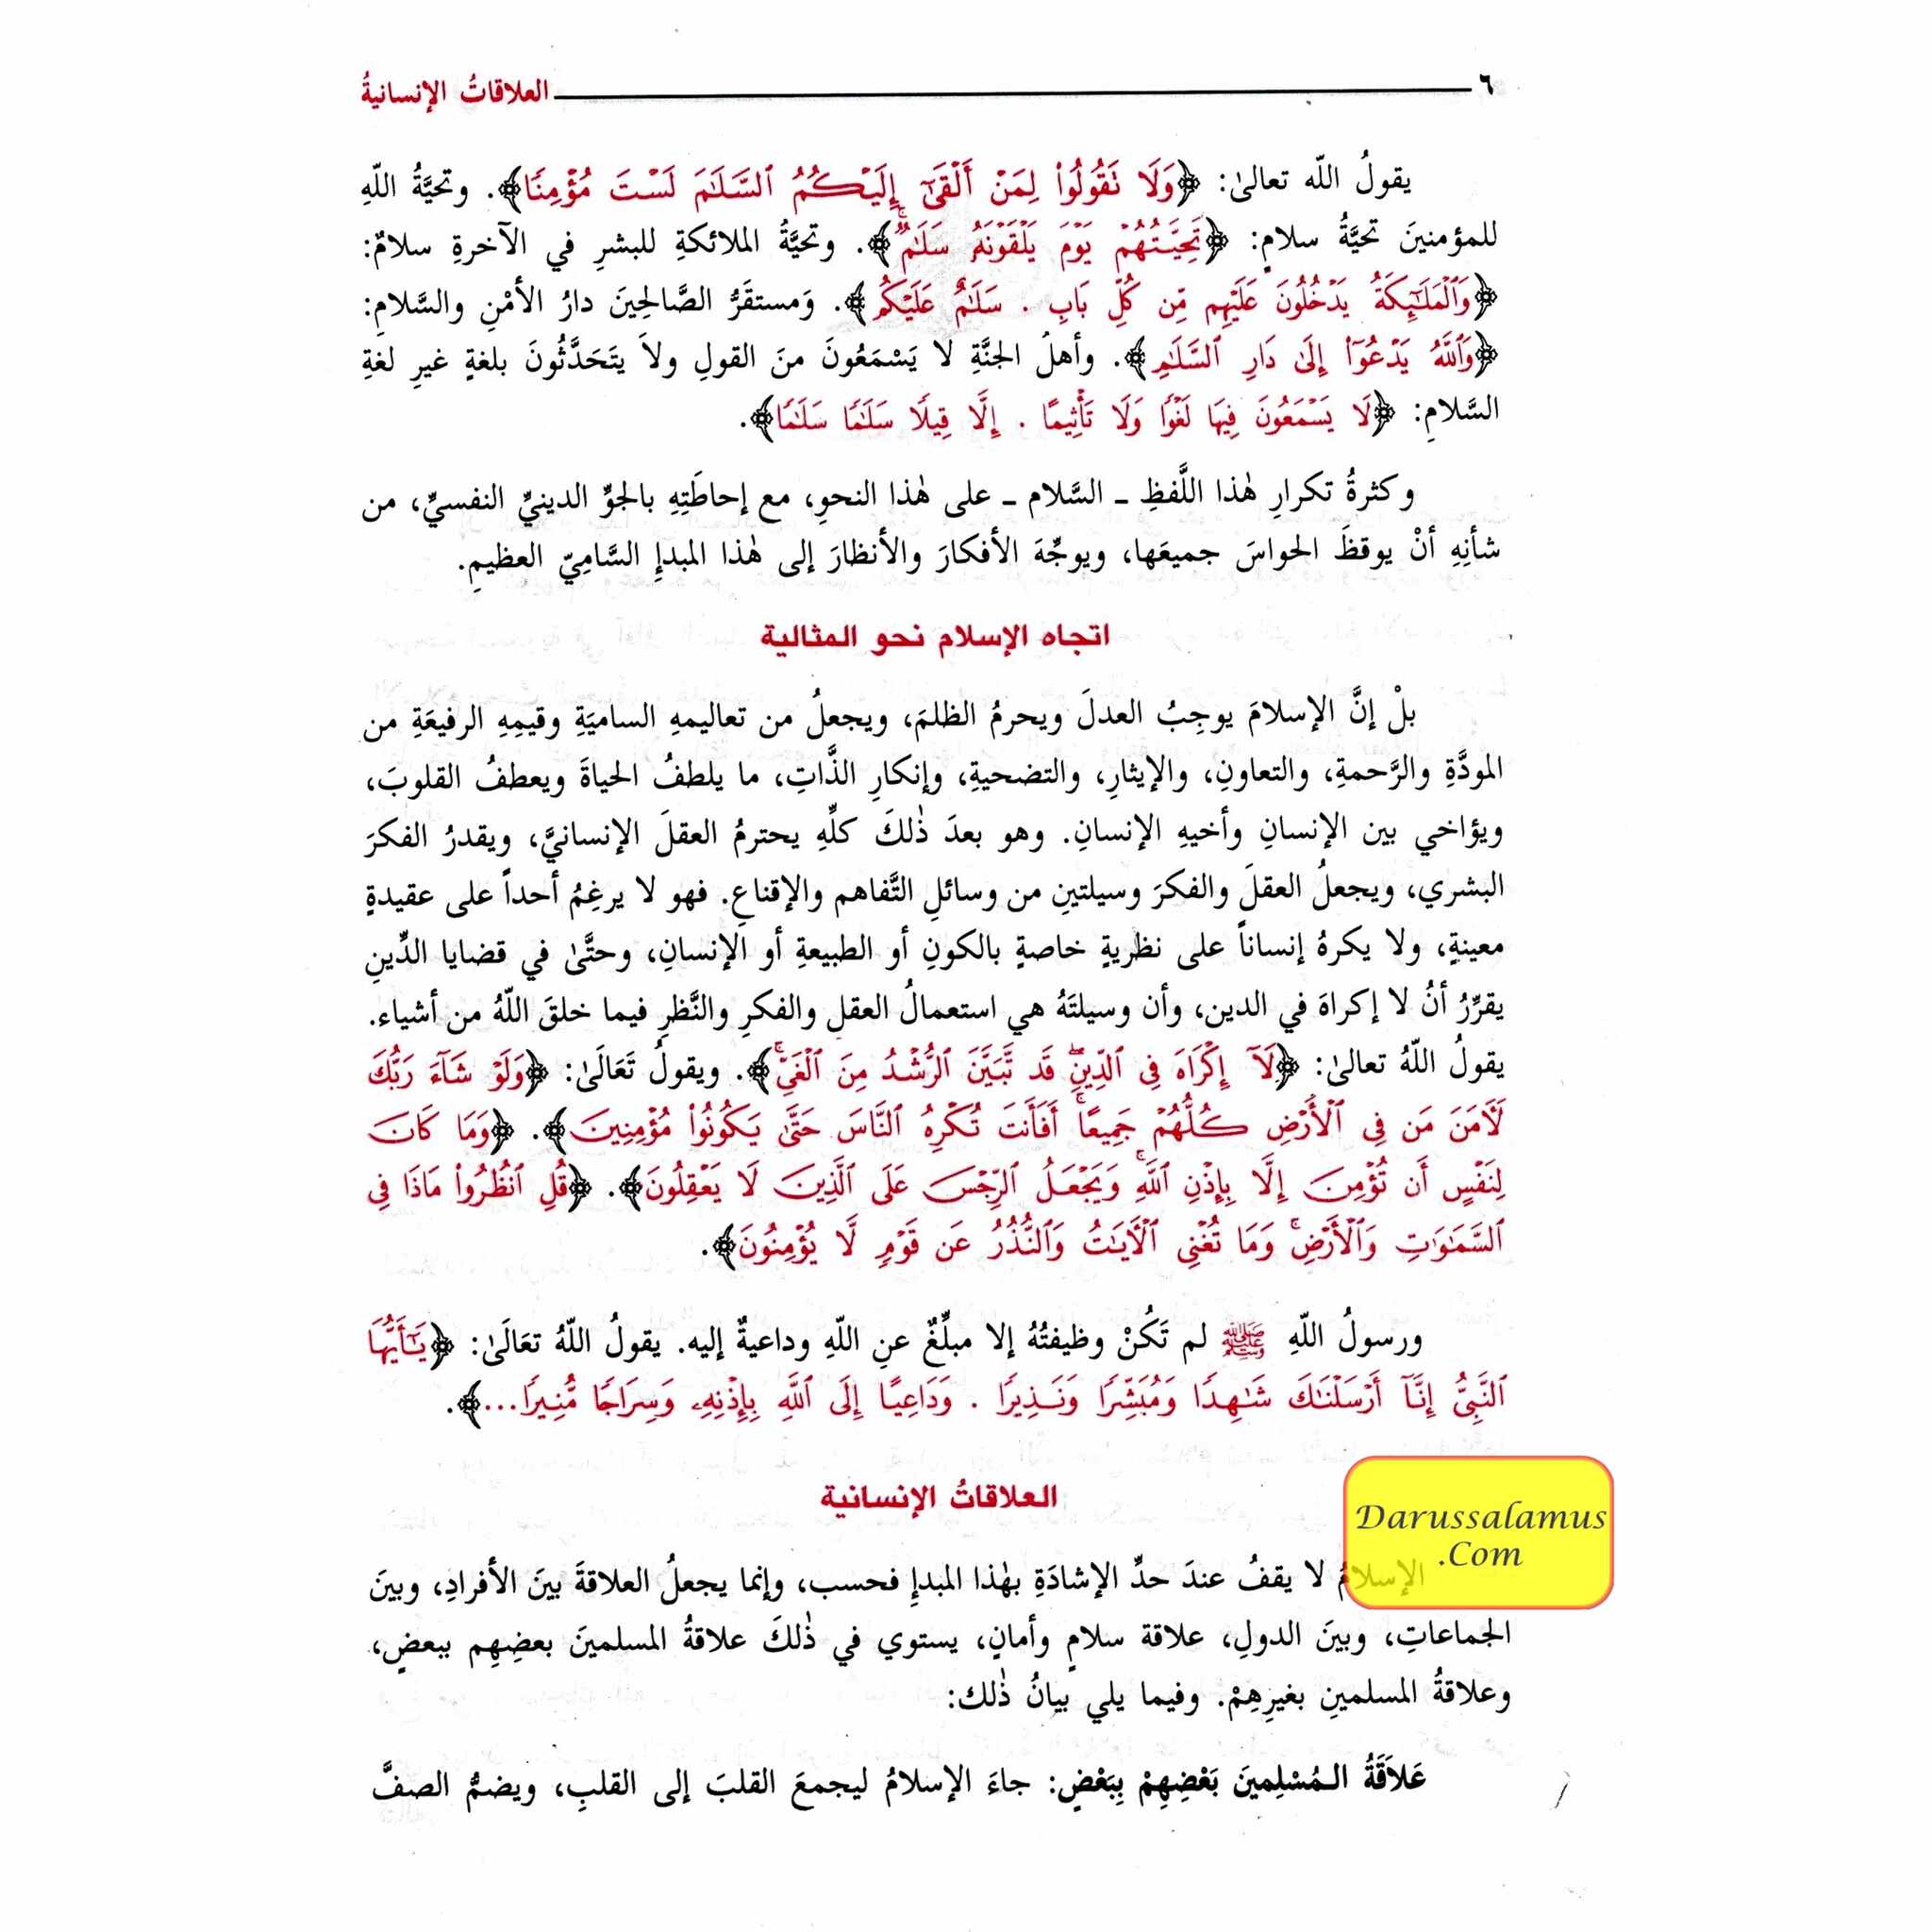 ٦ العلاقاتُ الإنسانيةُ
يقولُ اللّه تعالىٰ: ﴿وَلَا نَقُولُوا۟ لِمَنْ أَلْقَىٰٓ إِلَيْكُمُ ٱلسَّلَـٰمَ لَسْتَ مُؤْمِنًا﴾. وتحيَّةُ اللّهِ
للمؤمنينَ تحيَّةُ سلامٍ: ﴿تَحِيَّتُهُمْ يَوْمَ يَلْقَوْنَهُۥ سَلَـٰمٌ ۚ﴾. وتحيَّةُ الملائكةِ للبشرِ في الآخرةِ سلامٌ:
﴿وَٱلْمَلَـٰٓئِكَةُ يَدْخُلُونَ عَلَيْهِم مِّن كُلِّ بَابٍ . سَلَـٰمٌ عَلَيْكُم﴾. وَمستقَرُّ الصَّالحِينَ دارُ الأمْنِ والسَّلامِ:
﴿وَٱللَّهُ يَدْعُوٓا۟ إِلَىٰ دَارِ ٱلسَّلَـٰمِ﴾. وأهلُ الجنَّةِ لا يَسْمَعُونَ منَ القولِ ولاَ يتَحَدَّثُونَ بلغةٍ غيرِ لغةِ
السَّلامِ: ﴿لَا يَسْمَعُونَ فِيهَا لَغْوًا وَلَا تَأْثِيمًا . إِلَّا قِيلًا سَلَـٰمًا سَلَـٰمًا﴾.
وكثرةُ تكرارِ هٰذا اللَّفظِ ـ السَّلام ـ على هٰذا النحوِ، مع إحاطَتِهِ بالجوِّ الدينيِّ النفسيِّ، من
شأنِهِ أنْ يوقظَ الحواسَ جميعَها، ويوجِّهَ الأفكارَ والأنظارَ إلى هٰذا المبدإِ السَّامِيّ العظيمِ.
اتجاه الإسلام نحو المثالية
بلْ إنَّ الإسلامَ يوجِبُ العدلَ ويحرمُ الظلمَ، ويجعلُ من تعاليمهِ الساميَةِ وقيمِهِ الرفيعَةِ من
المودَّةِ والرَّحمةِ، والتعاونِ، والإيثارِ، والتضحيةِ، وإنكارِ الذَّاتِ، ما يلطفُ الحياةَ ويعطفُ القلوبَ،
ويؤاخي بين الإنسانِ وأخيهِ الإنسانِ. وهو بعدَ ذٰلكَ كلِّهِ يحترمُ العقلَ الإنسانيَّ، ويقدرُ الفكرَ
البشري، ويجعلُ العقلَ والفكرَ وسيلتينِ من وسائلِ التَّفاهم والإقناعِ. فهو لا يرغِمُ أحداً على عقيدةٍ
معينةٍ، ولا يكرهُ إنساناً على نظريةٍ خاصةٍ بالكونِ أو الطبيعةِ أو الإنسانِ، وحتَّىٰ في قضايا الدِّينِ
يقرِّرُ أنُ لا إكراهَ في الدين، وأن وسيلتَهُ هي استعمالُ العقلِ والفكرِ والنَّظرِ فيما خلقَ اللّهُ من أشياء.
يقولُ اللّهُ تعالىٰ: ﴿لَآ إِكْرَاهَ فِى ٱلدِّينِ ۖ قَد تَّبَيَّنَ ٱلرُّشْدُ مِنَ ٱلْغَىِّ ۚ﴾. ويقولُ تَعَالَىٰ: ﴿وَلَوْ شَآءَ رَبُّكَ
لَـَٔامَنَ مَن فِى ٱلْأَرْضِ كُلُّهُمْ جَمِيعًا ۚ أَفَأَنتَ تُكْرِهُ ٱلنَّاسَ حَتَّىٰ يَكُونُوا۟ مُؤْمِنِينَ﴾. ﴿وَمَا كَانَ
لِنَفْسٍ أَن تُؤْمِنَ إِلَّا بِإِذْنِ ٱللَّهِ ۚ وَيَجْعَلُ ٱلرِّجْسَ عَلَى ٱلَّذِينَ لَا يَعْقِلُونَ﴾. ﴿قُلِ ٱنظُرُوا۟ مَاذَا فِى
ٱلسَّمَـٰوَٰتِ وَٱلْأَرْضِ ۚ وَمَا تُغْنِى ٱلْـَٔايَـٰتُ وَٱلنُّذُرُ عَن قَوْمٍ لَّا يُؤْمِنُونَ﴾.
ورسولُ اللّهِ ﷺ لم تَكُنْ وظيفتُهُ إلا مبلِّغٌ عنِ اللّهِ وداعيةٌ إليه. يقولُ اللّهُ تعَالَىٰ: ﴿يَـٰٓأَيُّهَا
ٱلنَّبِىُّ إِنَّآ أَرْسَلْنَـٰكَ شَـٰهِدًا وَمُبَشِّرًا وَنَذِيرًا . وَدَاعِيًا إِلَى ٱللَّهِ بِإِذْنِهِۦ وَسِرَاجًا مُّنِيرًا...﴾.
العلاقاتُ الإنسانية
Darussalamus
.Com
الإسلامُ لا يقفُ عندَ حدِّ الإشادَةِ بهٰذا المبدإِ فحسب، وإنما يجعلُ العلاقةَ بينَ الأفرادِ، وبينَ
الجماعاتِ، وبينَ الدولِ، علاقة سلامٍ وأمانٍ، يستوي في ذٰلكَ علاقةُ المسلمينَ بعضِهِم ببعضٍ،
وعلاقةُ المسلمينِ بغيرِهِمْ. وفيما يلي بيانُ ذٰلك:
عَلاَقَةُ الـمُسْلِمينَ بَعْضِهِمْ بِبَعْضٍ: جاءَ الإسلامُ ليجمعَ القلبَ إلى القلبِ، ويضمُّ الصفَّ